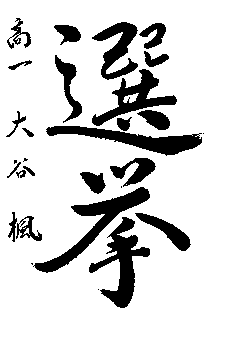 選挙
高一 大谷 楓